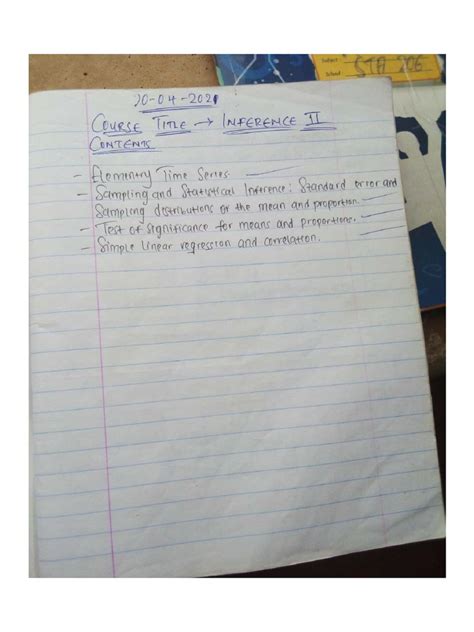 Subject STA 206
School
20-04-2021
COURSE TITLE → INFERENCE II
CONTENTS
- Elementry Time Series
- Sampling and Statistical Inference: Standard error and
Sampling distributions of the mean and proportion.
- Test of significance for means and proportions.
- Simple linear regression and correlation.